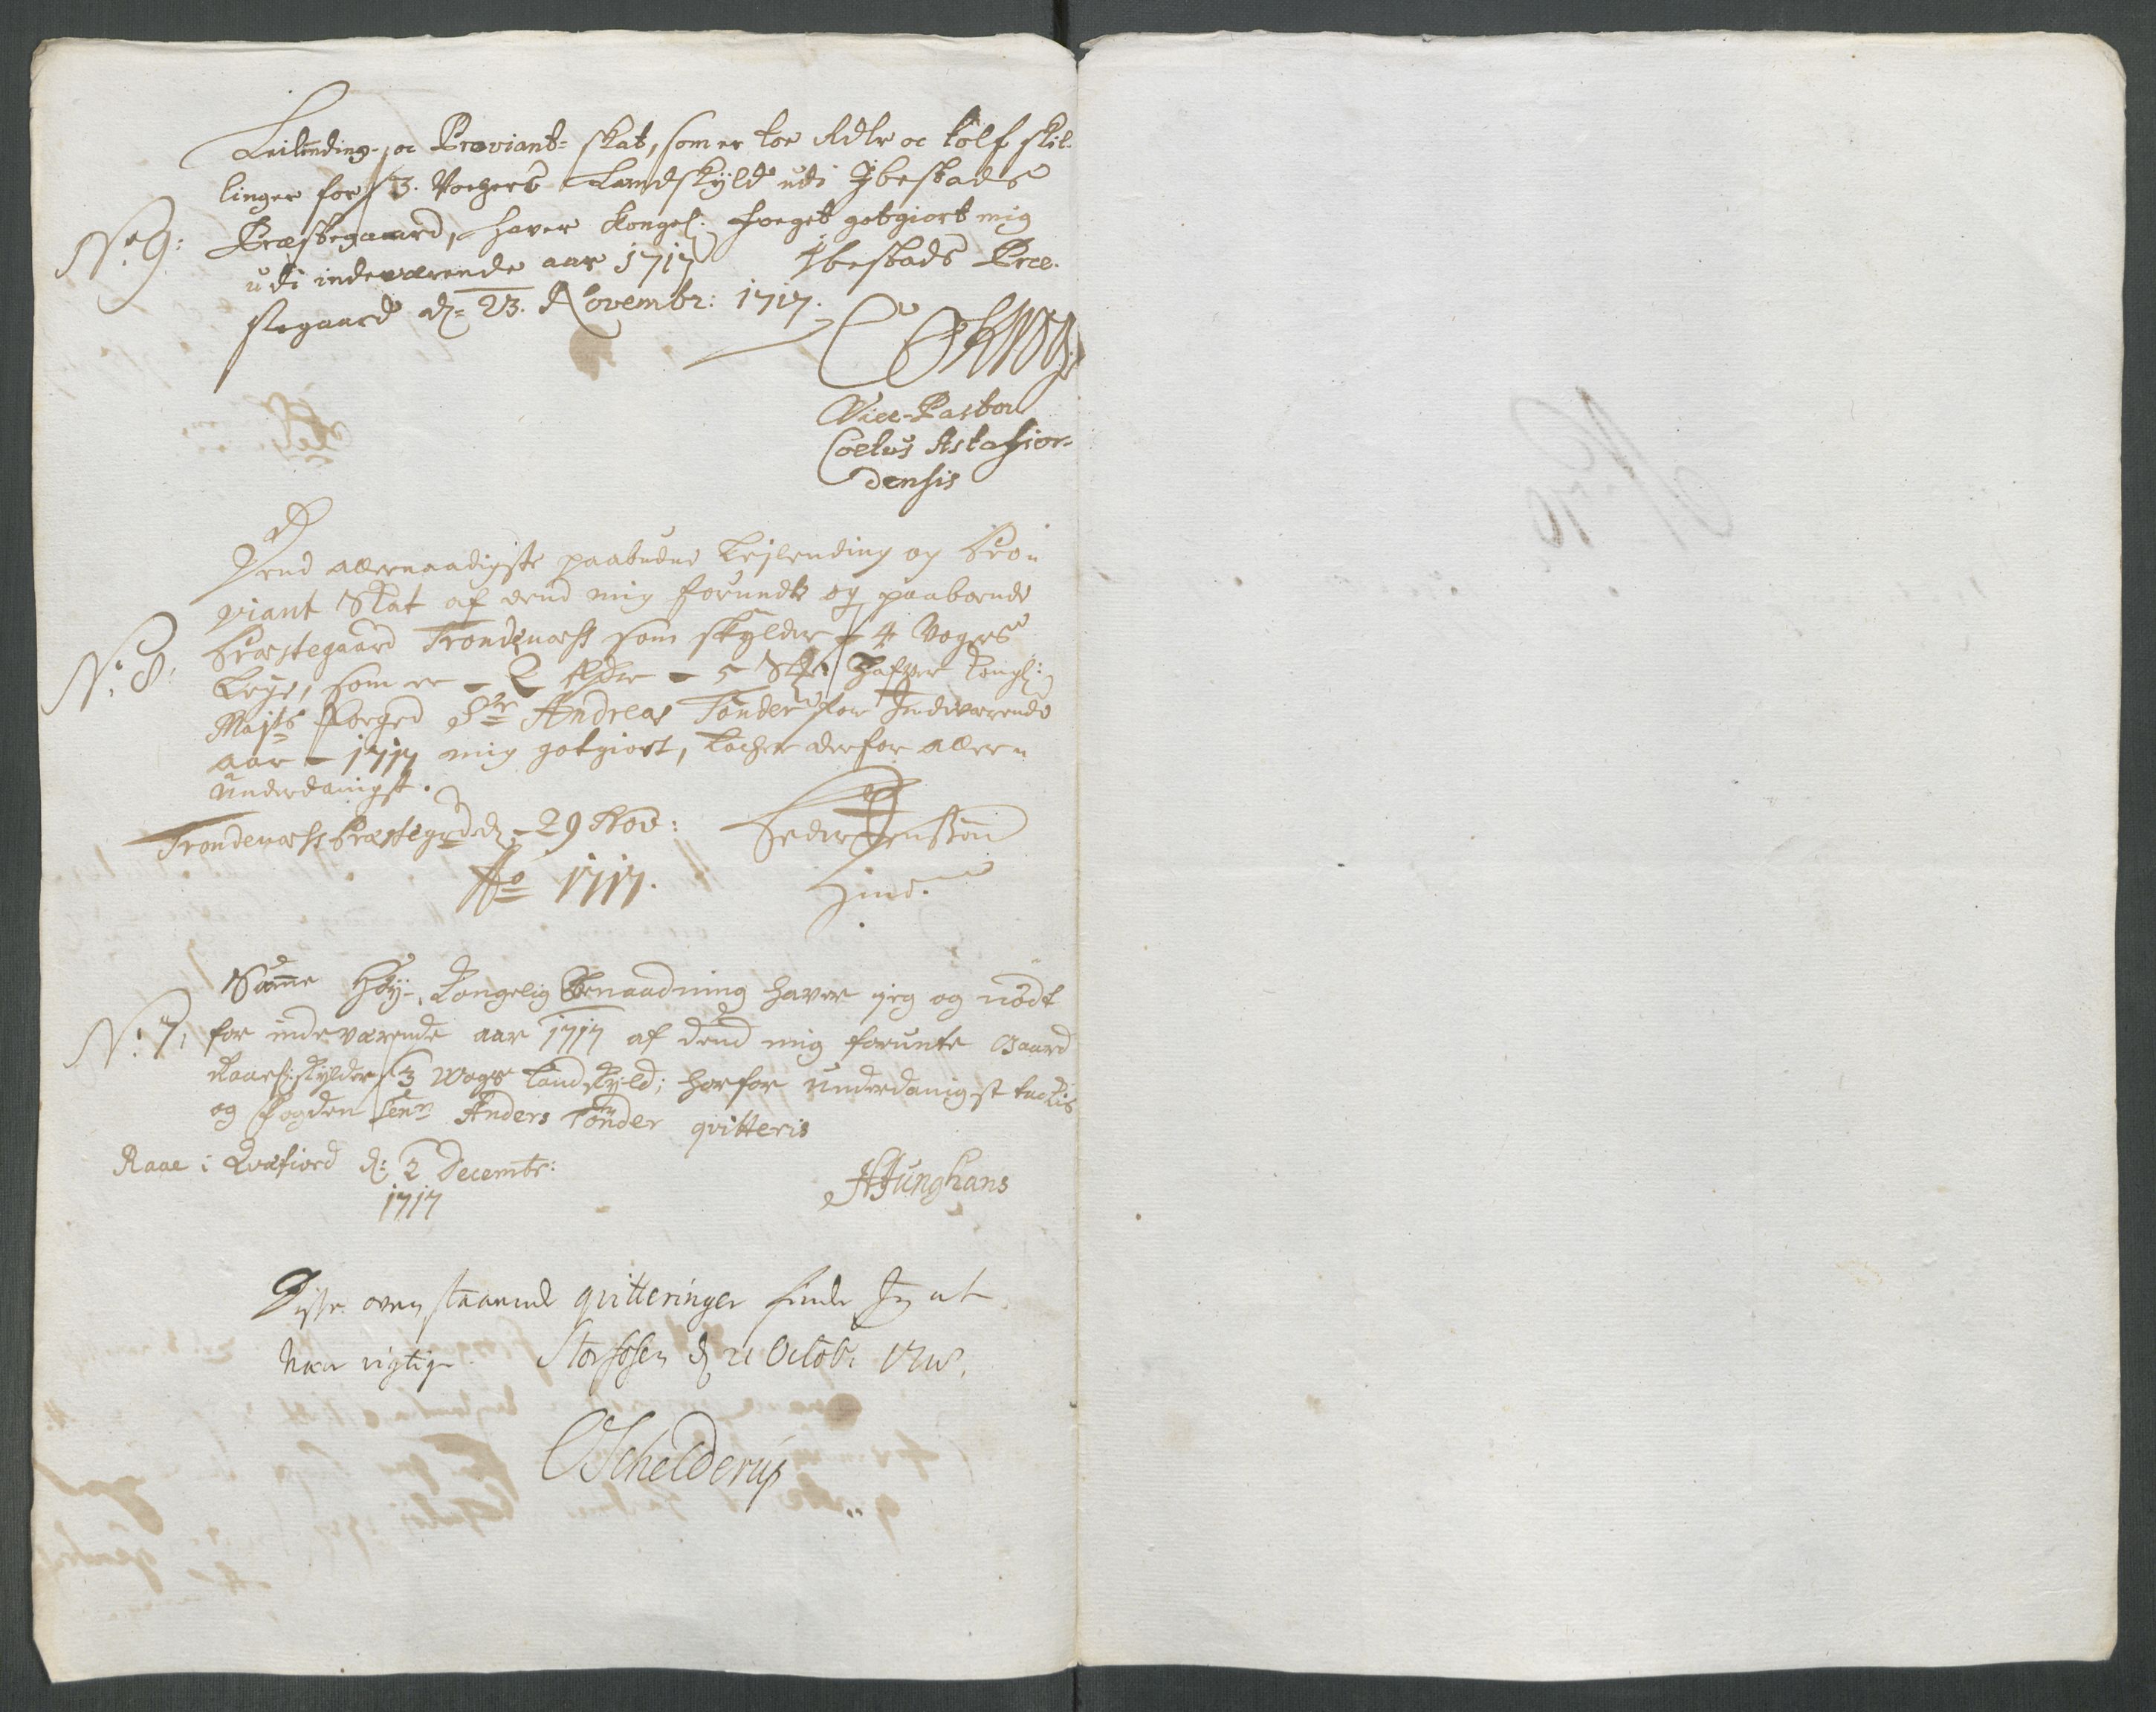 Leilending- oc Proviant- skat, som er toe Rdlr oc tolf skil-
linger for 3. Vogers Landskyld udi Ibestads
No 9: Præstegaard, haver Kongel: Foeget gotgiort mig
udi indeværende aar 1717 Ibestads Præ-
stegaard d: 23. Novembr: 1717.
Vice-Pastor
Coetus Astafior-
densis
Dend allernaadigste paabudne Lejlending og Pro-
viant Skat af dend mig forundte og paaboende
No 8: Præstegaard Trondenæss som skylder - 4 Voger
Leye, som er - 2 Rdlr - 5 Sk: Hafver Kongl:
Maj:ts Foged Sr Andreas Tønder for Indeværende
aar - 1717 mig gotgiort, tacher derfor aller-
underdanigst.
Trondenæss Præstegrd d: 29 Nov: Peder Jenssøn
Ao 1717. Hind.
Samme Høy-Kongelig Benaadning haver jeg og nødt
No 7: for indeværende aar 1717 af dend mig forunte Gaard
Raae skylder 3 Wog Landskyld; horfor underdanigst tackis
og Fogden Senr Anders Tønder qvitteris
Raae i Qvæfiord d: 2 Decembr:
1717 HJunghans
Disse ovenstaaende qvitteringer finde Jeg at
være rigtige. Storfosen d 21 Octobr 1718.
OSchelderup